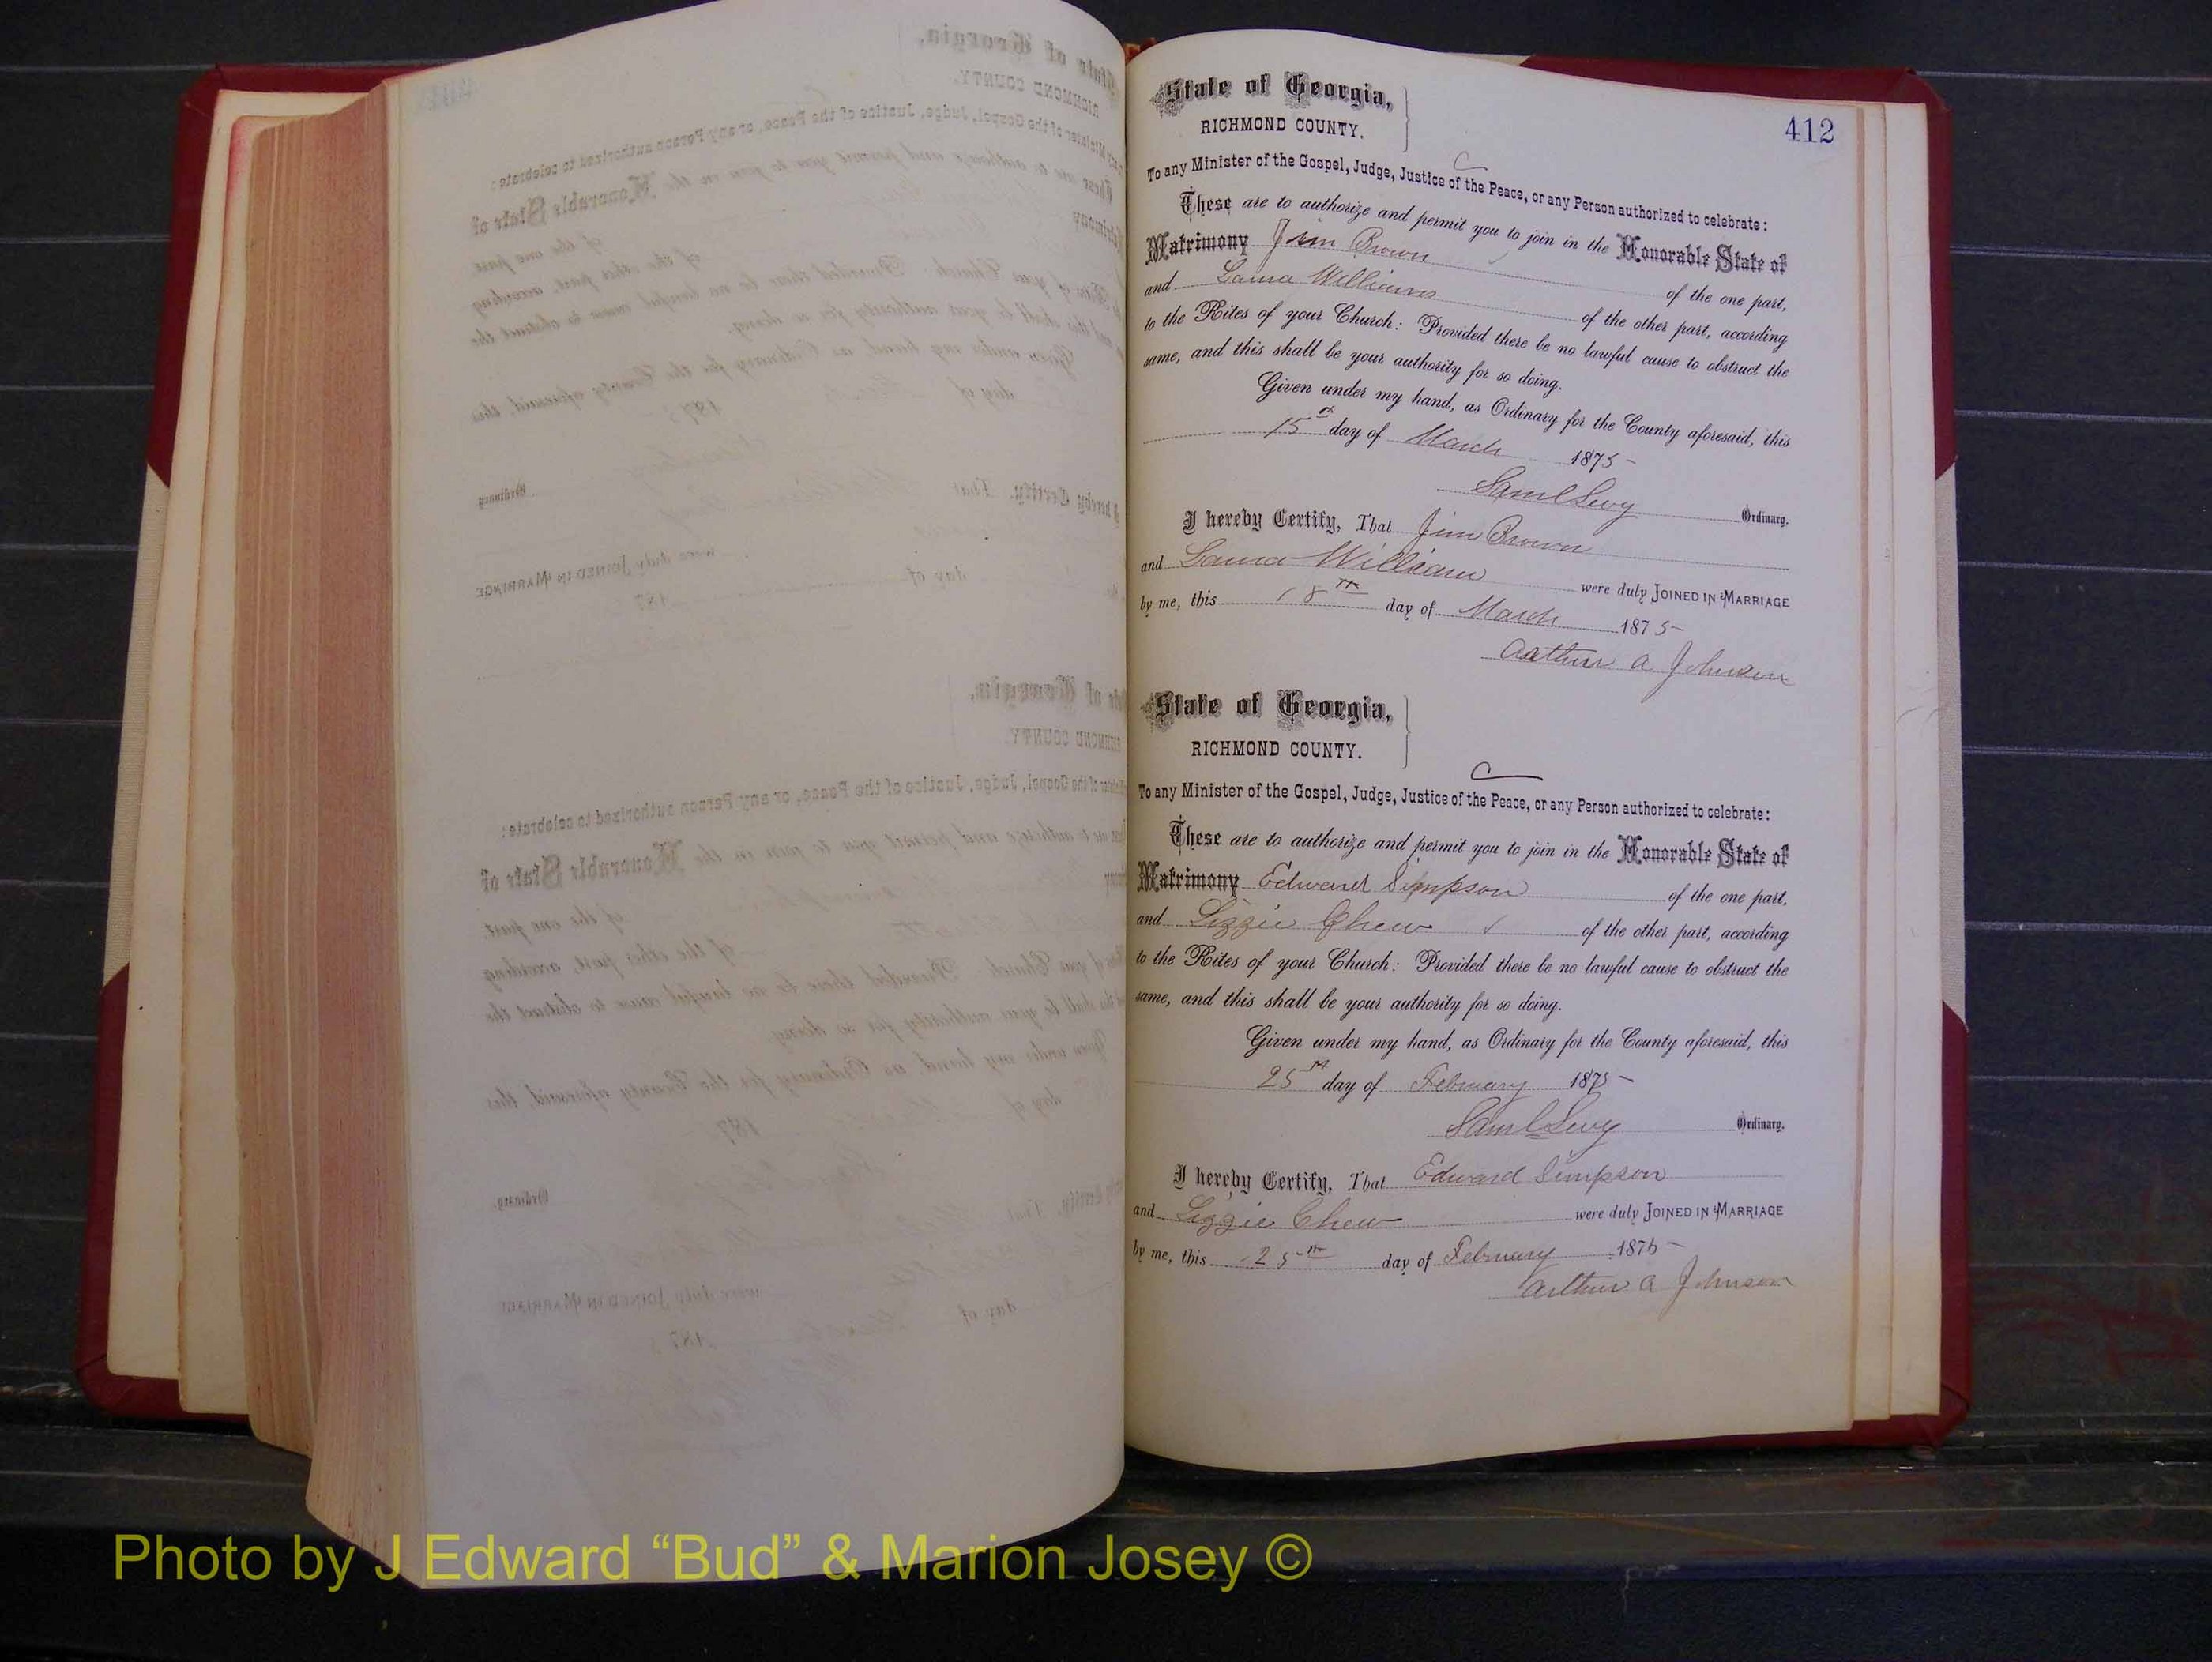 State of Georgia,
RICHMOND COUNTY.
412
C
To any Minister of the Gospel, Judge, Justice of the Peace, or any Person authorized to celebrate:
These are to authorize and permit you to join in the Honorable State of
Matrimony Jim Brown of the one part,
and Laura Williams of the other part, according
to the Rites of your Church: Provided there be no lawful cause to obstruct the
same, and this shall be your authority for so doing.
Given under my hand, as Ordinary for the County aforesaid, this
15th day of March 1875
Saml Levy Ordinary.
I hereby Certify, That Jim Brown
and Laura William were duly JOINED IN MARRIAGE
by me, this 18th day of March 1875
Arthur A Johnson
State of Georgia,
RICHMOND COUNTY.
C
To any Minister of the Gospel, Judge, Justice of the Peace, or any Person authorized to celebrate:
These are to authorize and permit you to join in the Honorable State of
Matrimony Edward Simpson of the one part,
and Lizzie Chew of the other part, according
to the Rites of your Church: Provided there be no lawful cause to obstruct the
same, and this shall be your authority for so doing.
Given under my hand, as Ordinary for the County aforesaid, this
25th day of February 1875
Saml Levy Ordinary.
I hereby Certify, That Edward Simpson
and Lizzie Chew were duly JOINED IN MARRIAGE
by me, this 25th day of February 1875
Arthur A Johnson
Photo by J Edward “Bud” & Marion Josey ©